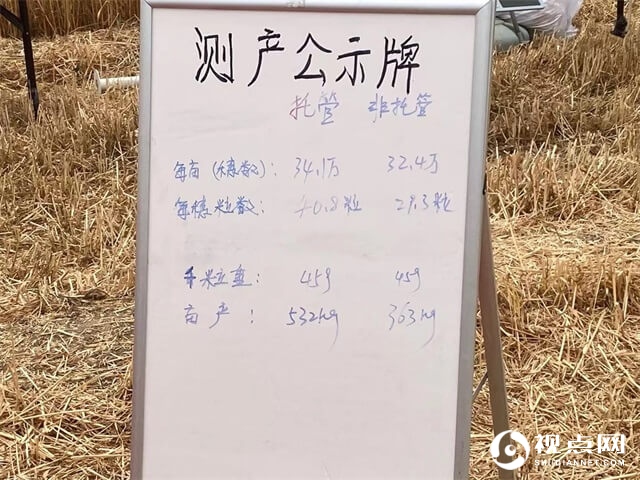 测产公示牌
托管 非托管
每亩(穗数): 34.1万 32.4万
每穗粒数: 40.8粒 29.3粒
千粒重: 45g 45g
亩产: 532kg 363kg
视点网
SHIDIANNET.COM